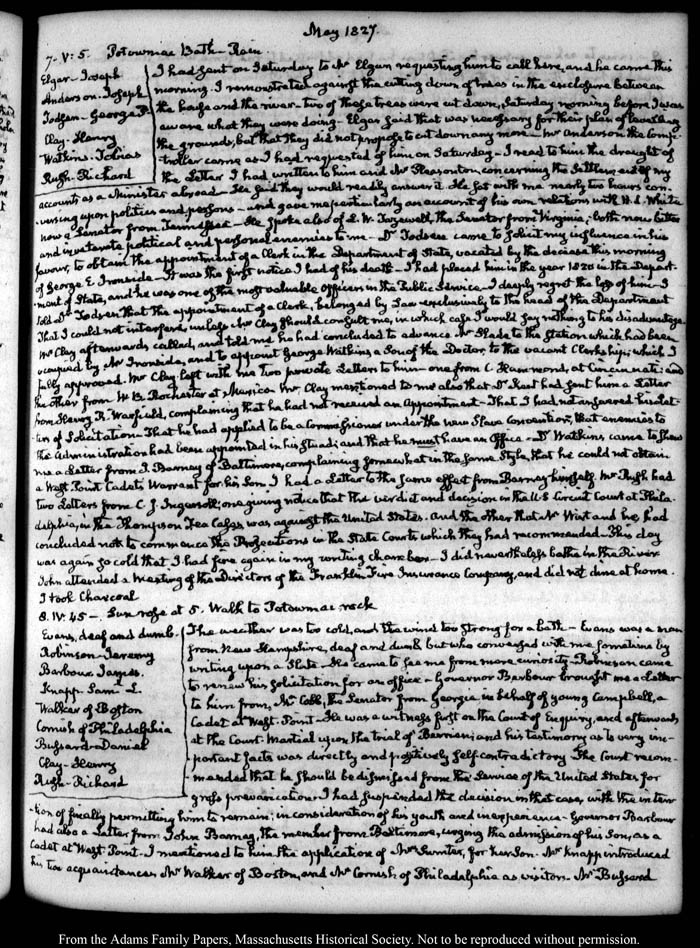 May 1827.
7. V: 5. Potowmac Bath - Rain
Elgar - Joseph
Anderson. Joseph
Todsen - George P.
Clay - Henry
Watkins. Tobias
Rush. Richard
I had sent on Saturday to Mr Elgar requesting him to call here, and he came this
morning. I remonstrated against the cutting down of trees in the enclosure between
the house and the river - two of these trees were cut down, Saturday morning before I was
aware what they were doing - Elgar said that was necessary for their plan of levelling
the grounds, but that they did not propose to cut down any more - Mr Anderson the Comp-
troller came as I had requested of him on Saturday - I read to him the draught of
the Letter I had written to him and Mr Pleasonton, concerning the settlement of my
accounts as a Minister abroad - He said they would readily answer it. He sat with me nearly two hours con-
versing upon politics and persons - and gave me particularly an account of his own relations with H. L. White
now a Senator from Tennessee - He spoke also of L. W. Tazewell, the Senator from Virginia; both now bitter
and inveterate political and personal enemies to me - Dr Todsen came to solicit my influence in his
favour, to obtain the appointment of a Clerk in the Department of State, vacated by the decease this morning
of George E. Ironside - It was the first notice I had of his death - I had placed him in the year 1820 in the Depart-
ment of State, and he was one of the most valuable Officers in the Public Service - I deeply regret the loss of him - I
told Dr Todsen that the appointment of a Clerk, belonged by Law exclusively to the head of the Department
That I could not interfere, unless Mr Clay should consult me, in which case I would say nothing to his disadvantage.
Mr Clay afterwards called, and told me he had concluded to advance Mr Slade to the Station which had been
occupied by Mr Ironside, and to appoint George Watkins, a Son of the Doctor, to the vacant Clerkship; which I
fully approved. Mr Clay left with me two private Letters to him - one from C. Hammond, at Cincinnati: and
the other from W. B. Rochester at Mexico. Mr Clay mentioned to me also that Dr Kent had sent him a Letter
from Henry R. Warfield, complaining that he had not received an appointment - That I had not answered his Let-
ters of Solicitation - That he had applied to be a Commissioner under the new Slave Convention, that enemies to
the Administration had been appointed in his stead; and that he must have an Office - Dr Watkins came to shew
me a Letter from J. Barney of Baltimore, complaining somewhat in the same Style, that he could not obtain
a West Point Cadet's Warrant for his Son. I had a Letter to the same effect from Barney himself. Mr Rush had
two Letters from C. J. Ingersoll; one giving notice that the verdict and decision in the U.S. Circuit Court at Phila-
delphia, on the Thompson Tea Cases, was against the United States. And the other that Mr West and he, had
concluded not to commence the Prosecutions in the State Courts which they had recommended - This day
was again so cold that I had fire again in my writing chamber - I did nevertheless bathe in the River
John attended a meeting of the Directors of the Franklin Fire Insurance Company, and did not dine at home.
I took Charcoal
8. IV: 45 - Sun rose at 5. Walk to Potowmac rock
Evans, deaf and dumb.
Robinson - Jeremy
Barbour James.
Knapp. Saml L.
Walker of Boston
Cornish of Philadelphia
Bussard - Daniel
Clay - Henry
Rush - Richard
The weather was too cold, and the wind too strong for a bath - Evans was a man
from New Hampshire, deaf and dumb but who conversed with me sometime by
writing upon a Slate - He came to see me from mere curiosity - Robinson came
to renew his solicitation for an office - Governor Barbour brought me a Letter
to him from, Mr Cobb, the Senator from Georgia in behalf of young Campbell, a
Cadet at West-Point - He was a witness first on the Court of Enquiry, and afterwards
at the Court-Martial upon the trial of Berrien; and his testimony as to very im-
portant facts was directly and positively self-contradictory. The Court recom-
mended that he should be dismissed from the Service of the United States for
gross prevarication. I had suspended the decision in that case, with the inten-
tion of finally permitting him to remain; in consideration of his youth and inexperience - Governor Barbour
had also a Letter from John Barney, the member from Baltimore, urging the admission of his Son, as a
Cadet at West Point - I mentioned to him the application of Mrs Sumter, for her Son - Mr Knapp introduced
his two acquaintances Mr Walker of Boston, and Mr Cornish of Philadelphia as visitors - Mr Bussard
From the Adams Family Papers, Massachusetts Historical Society. Not to be reproduced without permission.